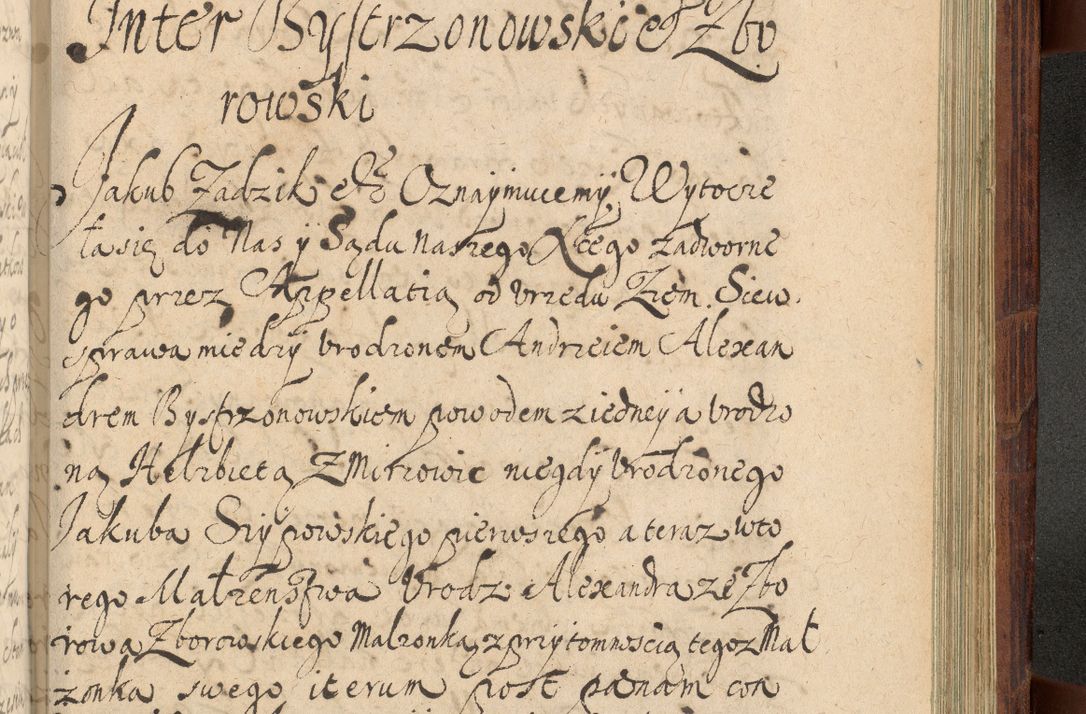 Inter Bystrzonowski et Zbo
rowski
Jakub Zadzik etc Oznaymuiemy, Wytocze
ła się do Nas y Sądu naszego Xcego zadworne
go przez Appellatią od vrzędu Ziem. Siew.
sprawa miedzy vrodzonem Andrzeiem Alexan
drem Bystrzonowskiem powodem z iedney a vrodzo
ną Helzbietą z Mirowic niegdy vrodzonego
Jakuba Srzypowskiego pierwszego a teraz wto
rego Małzenstwa vrodz Alexandra ze Zbo
rowa Zborowskiego Malzonką, z przytomnoscią tegoz Mał
zonka swego iterum post paenam con